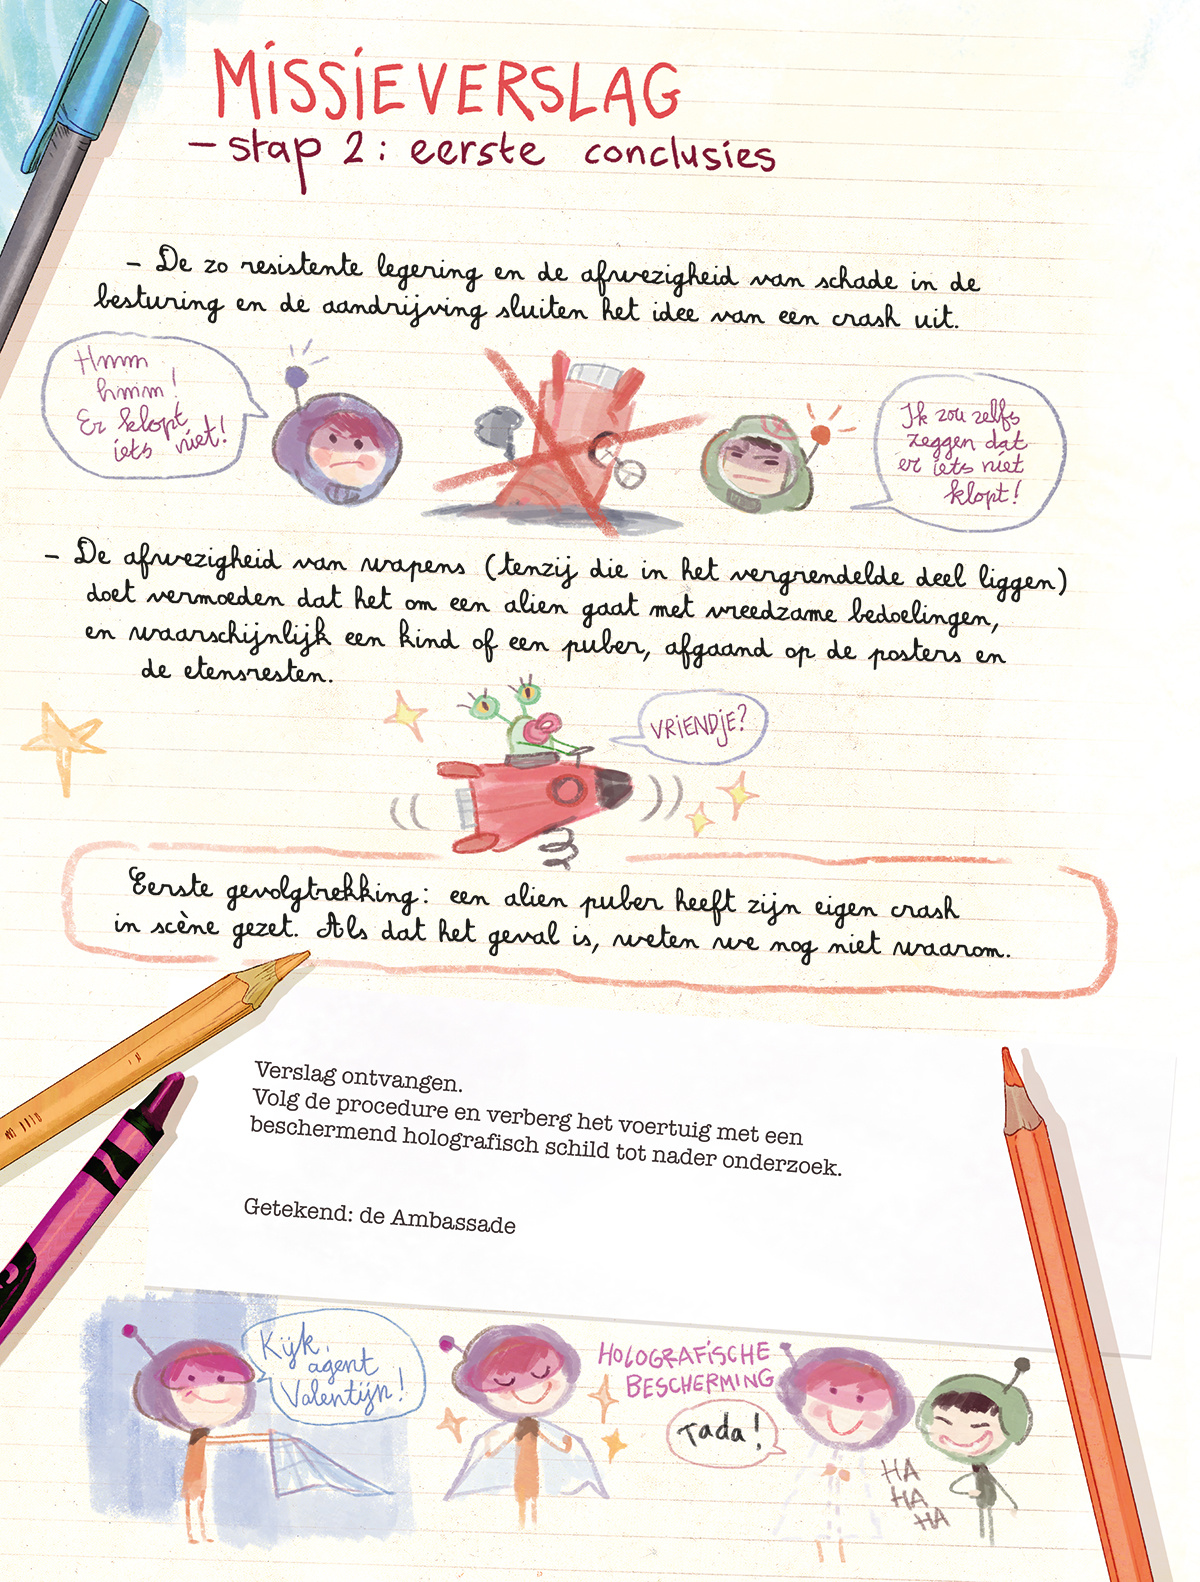 MISSIEVERSLAG
- stap 2: eerste conclusies
- De zo resistente legering en de afwezigheid van schade in de
besturing en de aandrijving sluiten het idee van een crash uit.
Hmm
hmm!
Er klopt
iets niet!
Ik zou zelfs
zeggen dat
er iets niet
klopt!
- De afwezigheid van wapens (tenzij die in het vergrendelde deel liggen)
doet vermoeden dat het om een alien gaat met vreedzame bedoelingen,
en waarschijnlijk een kind of een puber, afgaand op de posters en
de etensresten.
VRIENDJE?
Eerste gevolgtrekking: een alien puber heeft zijn eigen crash
in scène gezet. Als dat het geval is, weten we nog niet waarom.
Verslag ontvangen.
Volg de procedure en verberg het voertuig met een
beschermend holografisch schild tot nader onderzoek.
Getekend: de Ambassade
Kijk,
agent
Valentijn!
HOLOGRAFISCHE
BESCHERMING
Tada!
HA
HA
HA